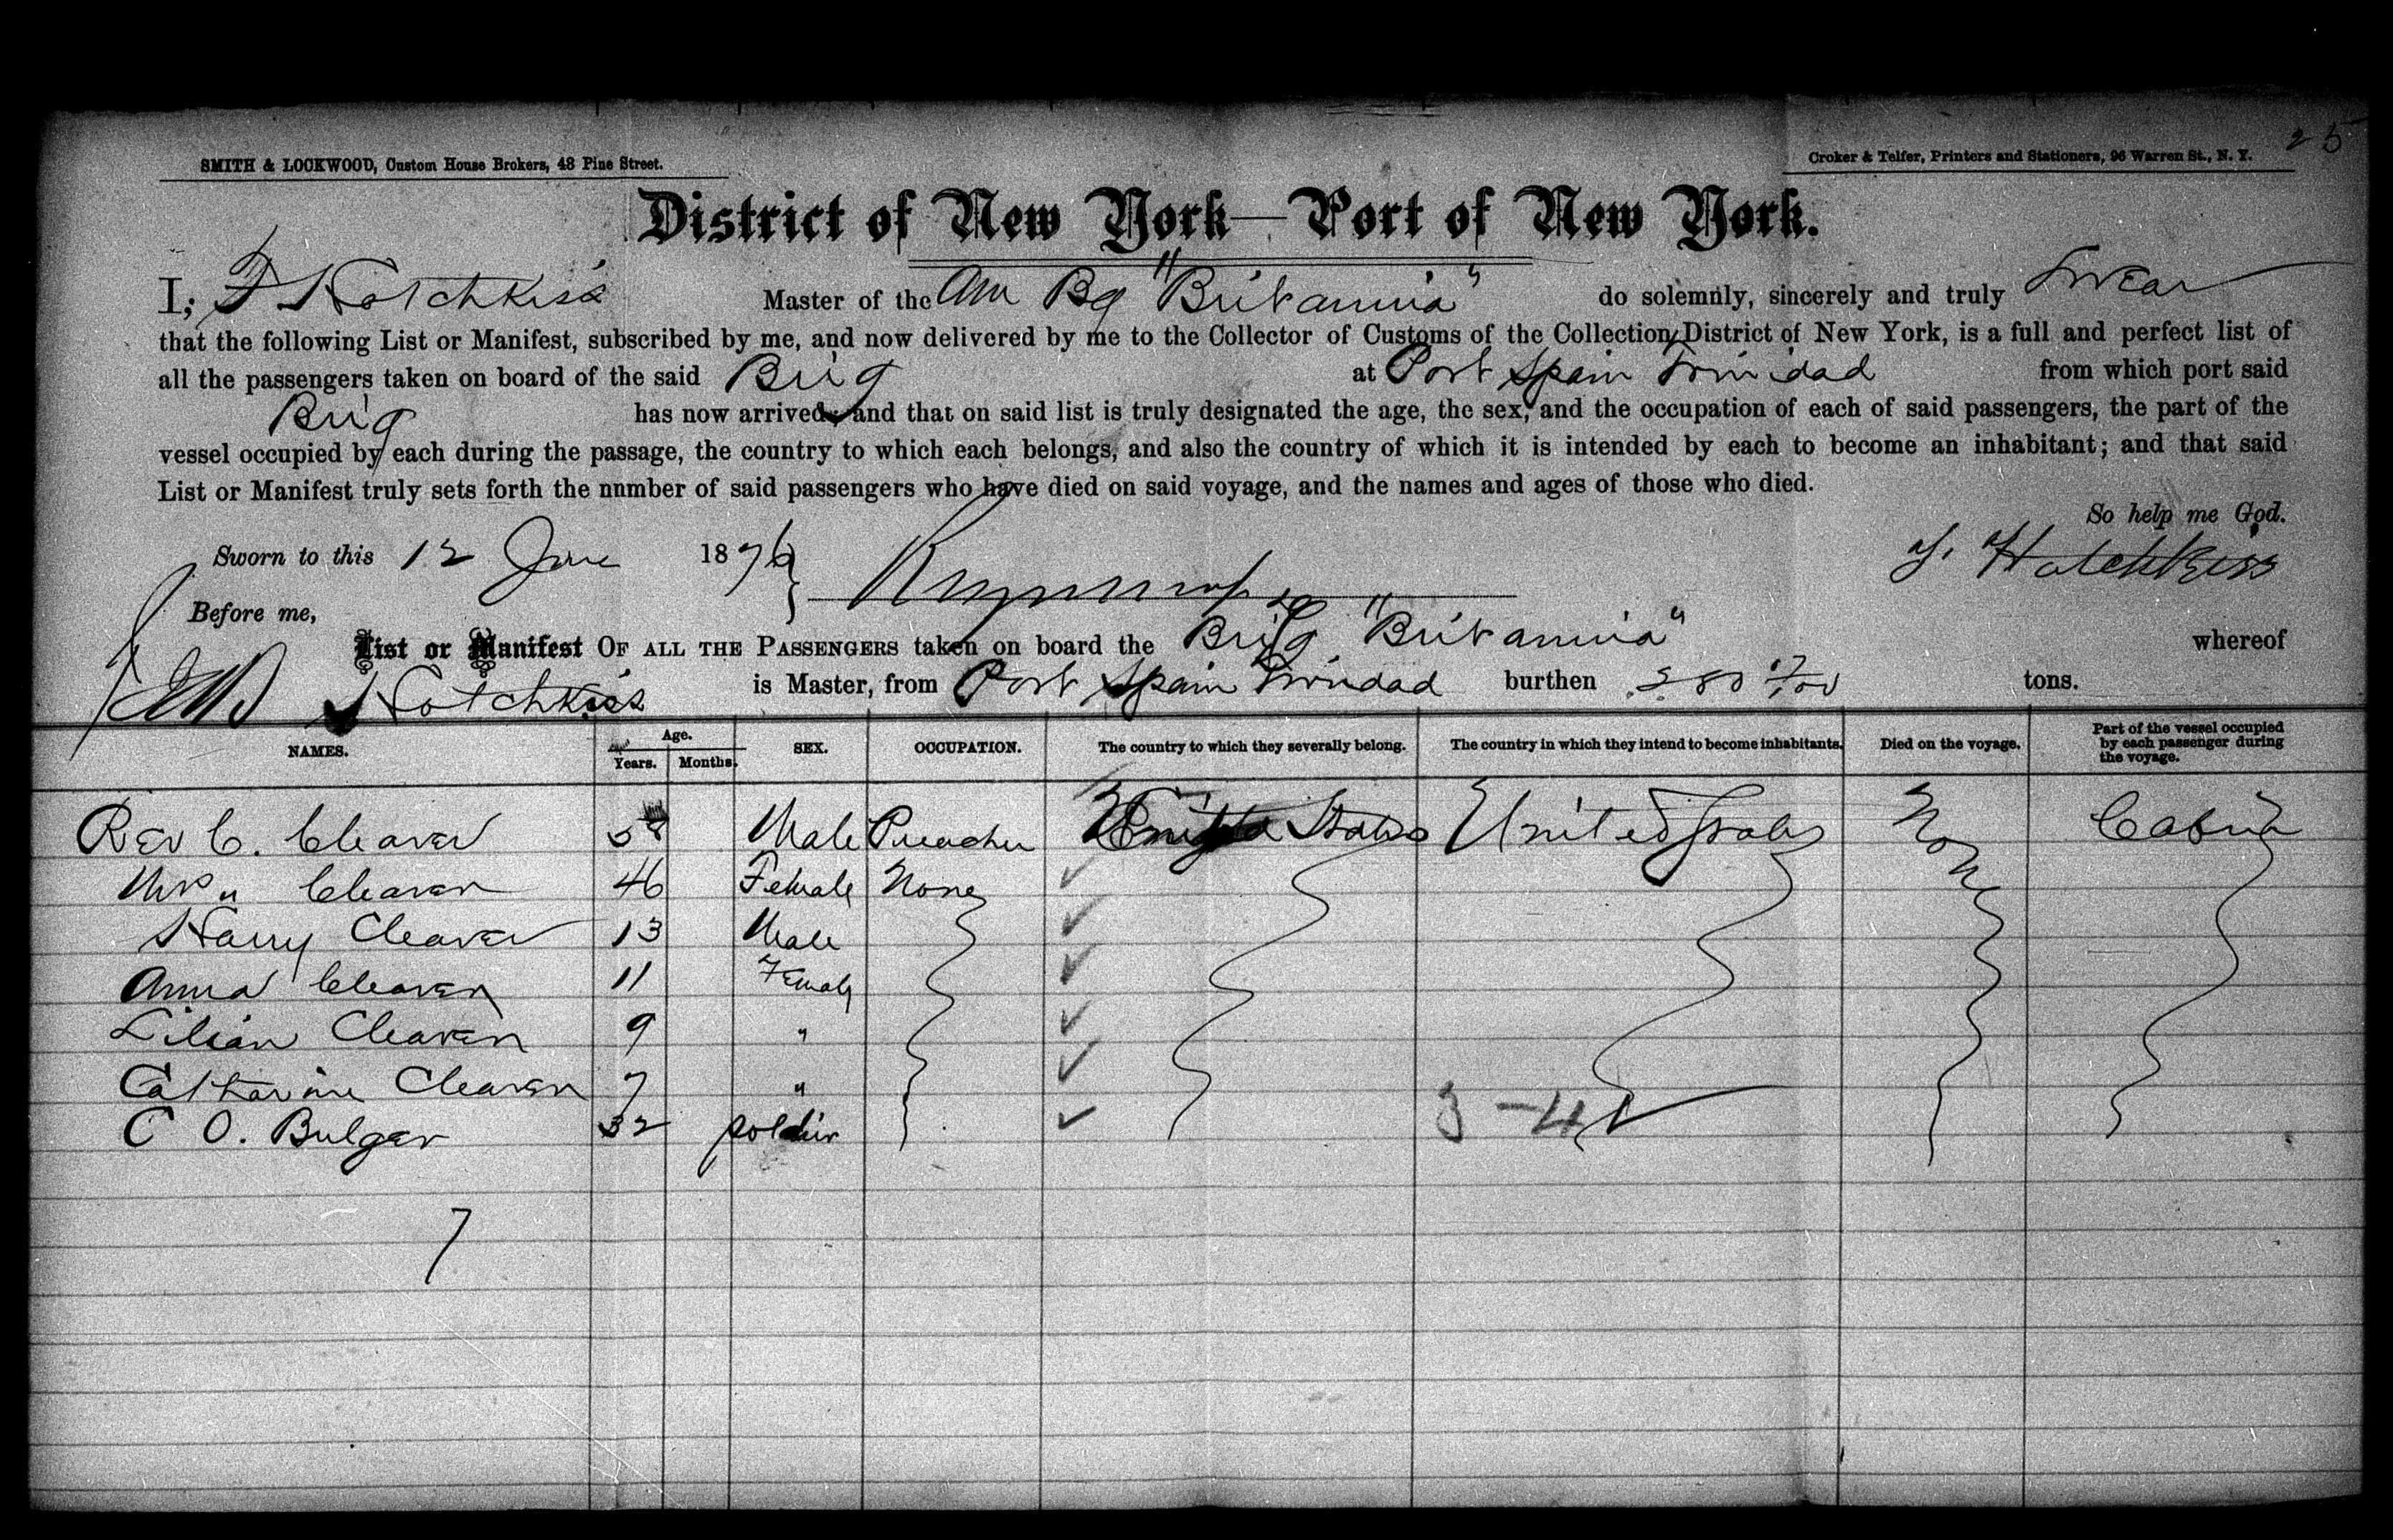 25
SMITH & LOCKWOOD, Custom House Brokers, 48 Pine Street.
Croker & Telfer, Printers and Stationers, 96 Warren St., N. Y.
District of New York—Port of New York.
I, F Hotchkiss Master of the Am Bg "Britannia" do solemnly, sincerely and truly Swear
that the following List or Manifest, subscribed by me, and now delivered by me to the Collector of Customs of the Collection District of New York, is a full and perfect list of
all the passengers taken on board of the said Brig at Port Spain Trinidad from which port said
Brig has now arrived; and that on said list is truly designated the age, the sex, and the occupation of each of said passengers, the part of the
vessel occupied by each during the passage, the country to which each belongs, and also the country of which it is intended by each to become an inhabitant; and that said
List or Manifest truly sets forth the nnmber of said passengers who have died on said voyage, and the names and ages of those who died.
So help me God.
Sworn to this 12 June 1876 F. Hotchkiss
Before me,
List or Manifest OF ALL THE PASSENGERS taken on board the Brig "Britannia" whereof
Hotchkiss is Master, from Port Spain Trinidad burthen 280 tons.
NAMES. Age. Years. Months. SEX. OCCUPATION. The country to which they severally belong. The country in which they intend to become inhabitants. Died on the voyage. Part of the vessel occupied by each passenger during the voyage.
Rev C. Cleaver Male Preacher United States United States None Cabin
Mrs " Cleaver 46 Female None
Harry Cleaver 13 Male
Anna Cleaver 11 Female
Lilian Cleaver 9 "
Catharine Cleaver 7 "
C O. Bulger 32 soldier
3-4
7